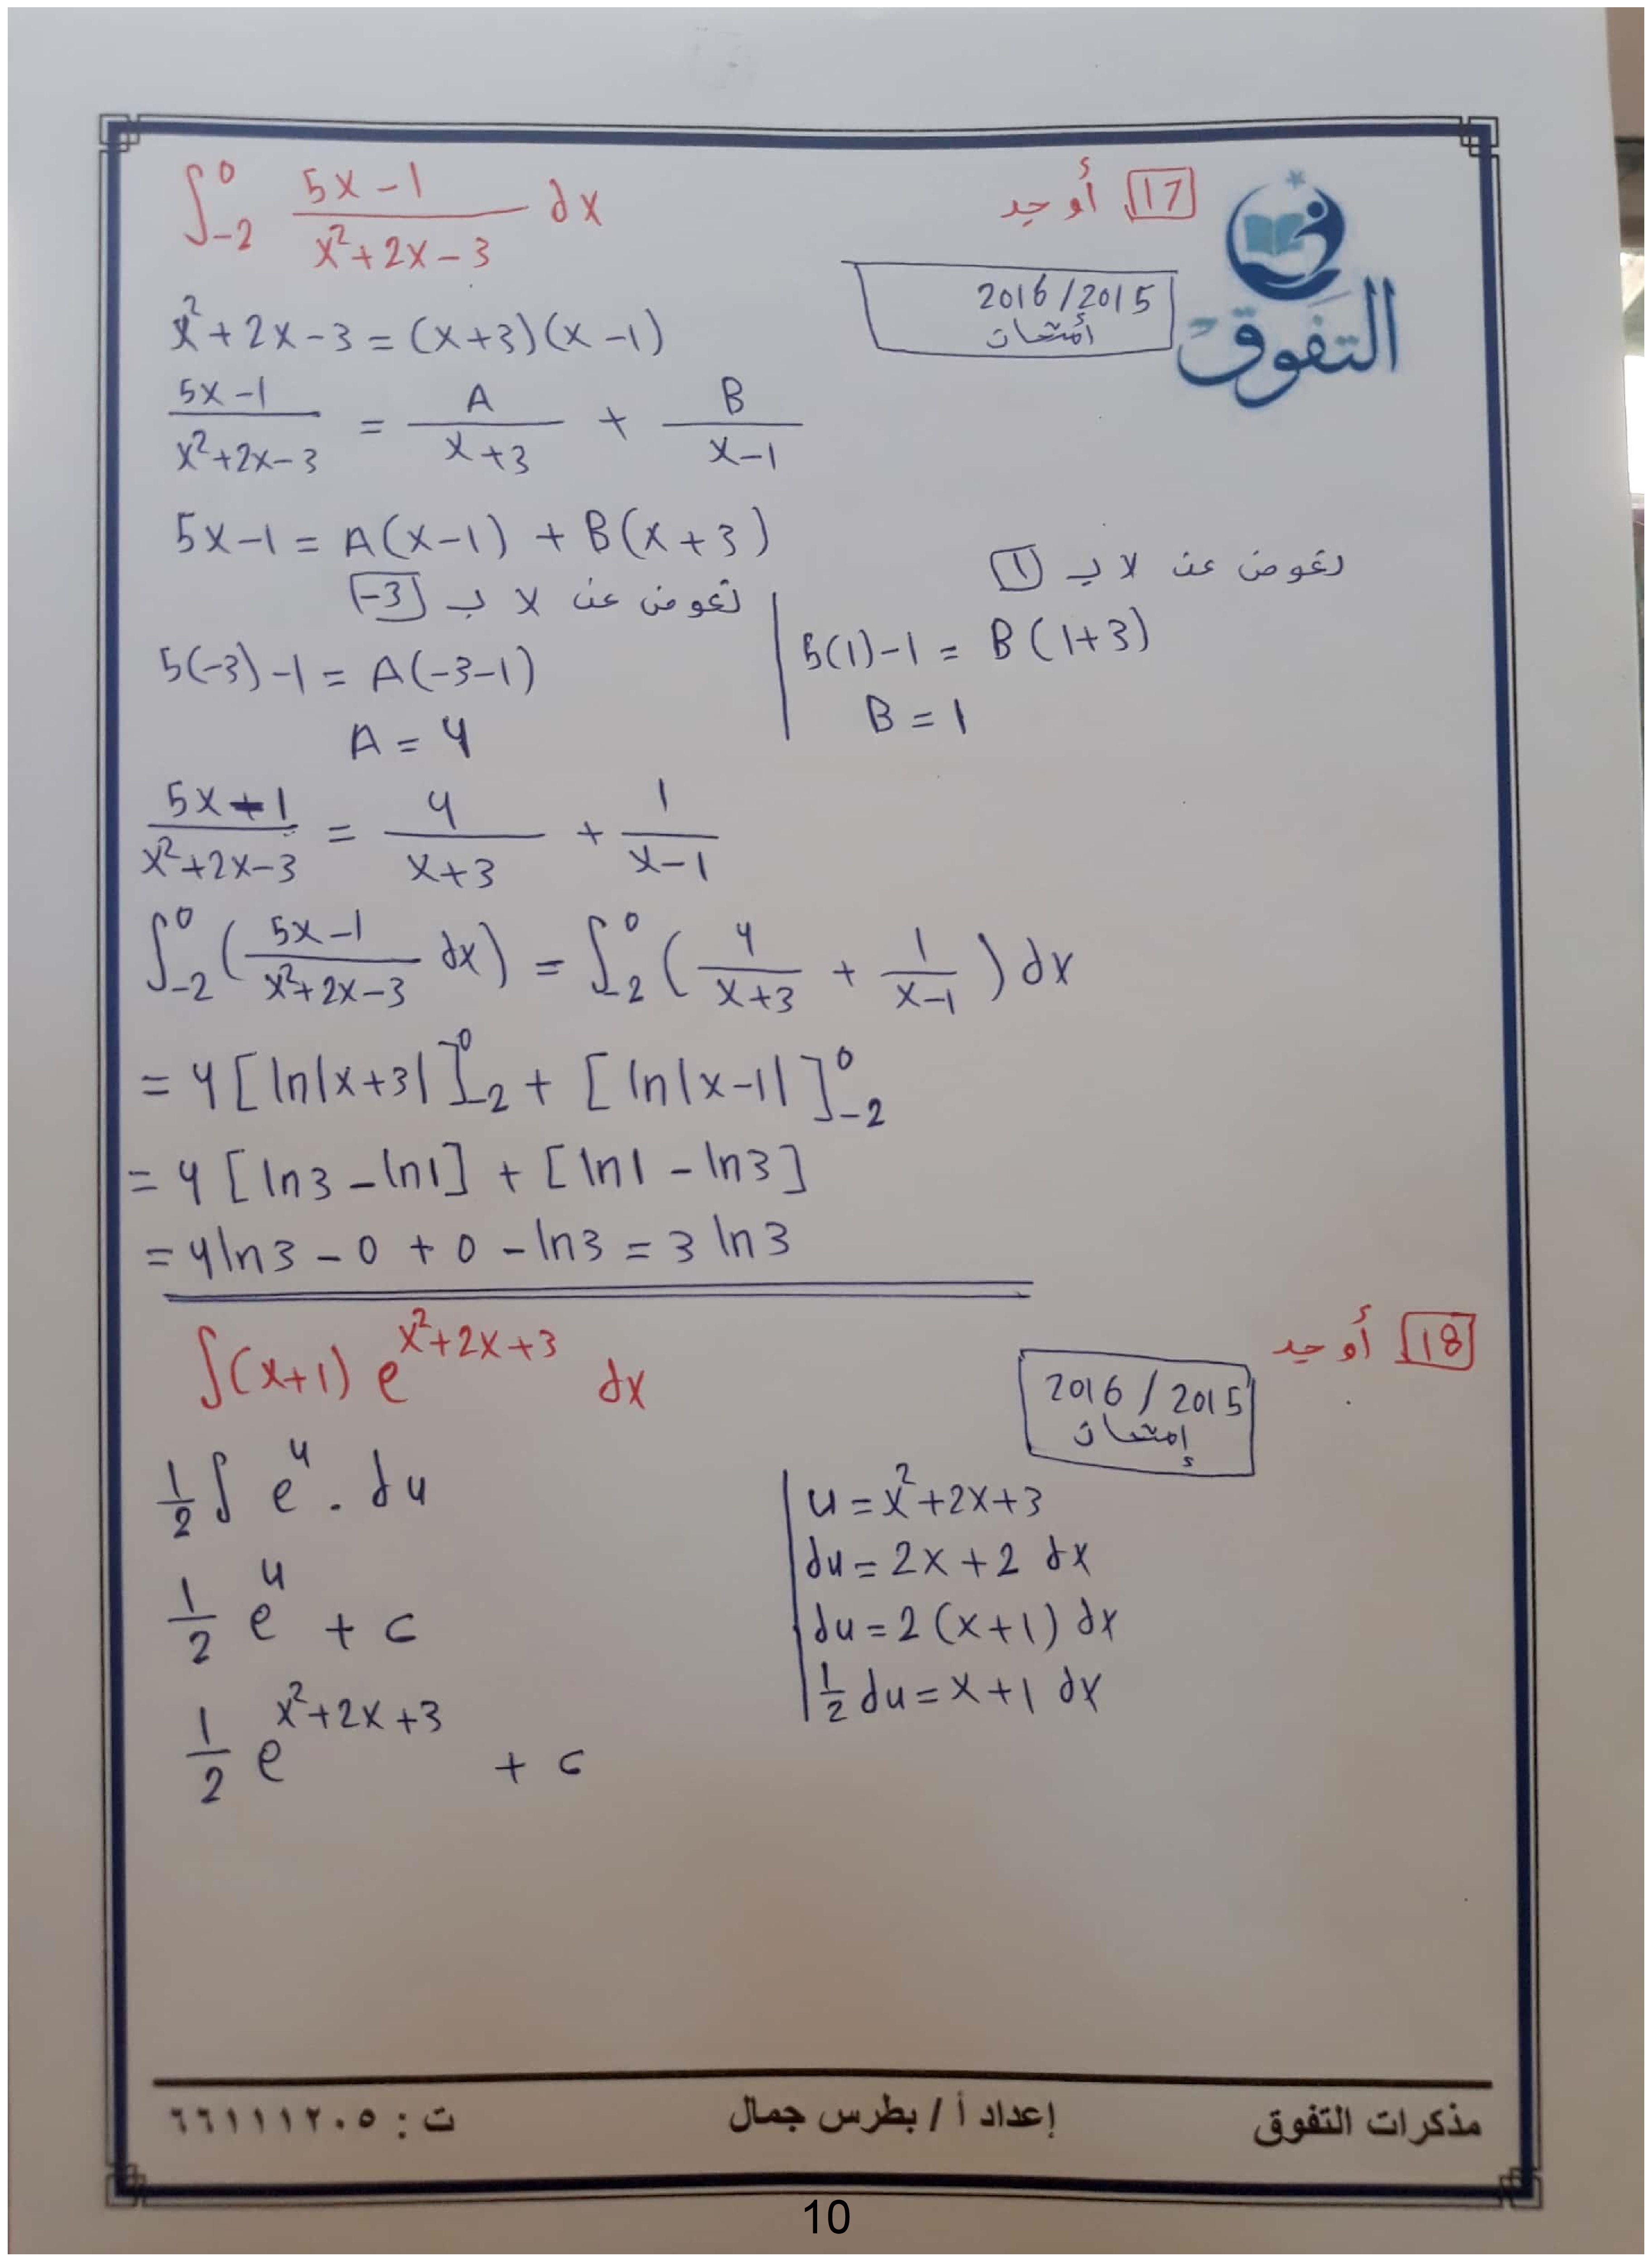 17 أوجد ∫₋₂⁰ (5x-1)/(x²+2x-3) dx
التفوق
2016/2015
أمتحان
x²+2x-3 = (x+3)(x-1)
(5x-1)/(x²+2x-3) = A/(x+3) + B/(x-1)
5x-1 = A(x-1) + B(x+3)
نعوض عن x بـ 1
5(1)-1 = B(1+3)
B = 1
نعوض عن x بـ -3
5(-3)-1 = A(-3-1)
A = 4
(5x+1)/(x²+2x-3) = 4/(x+3) + 1/(x-1)
∫₋₂⁰ ((5x-1)/(x²+2x-3) dx) = ∫₋₂⁰ (4/(x+3) + 1/(x-1)) dx
= 4[ln|x+3|]₋₂⁰ + [ln|x-1|]₋₂⁰
= 4[ln3 - ln1] + [ln1 - ln3]
= 4ln3 - 0 + 0 - ln3 = 3 ln3
18 أوجد ∫(x+1) e^(x²+2x+3) dx
2016/2015
إمتحان
u = x²+2x+3
du = 2x+2 dx
du = 2(x+1) dx
½ du = x+1 dx
½ ∫ e^u . du
½ e^u + c
½ e^(x²+2x+3) + c
مذكرات التفوق إعداد أ / بطرس جمال ت : ٦٦١١١٢٠٥
10